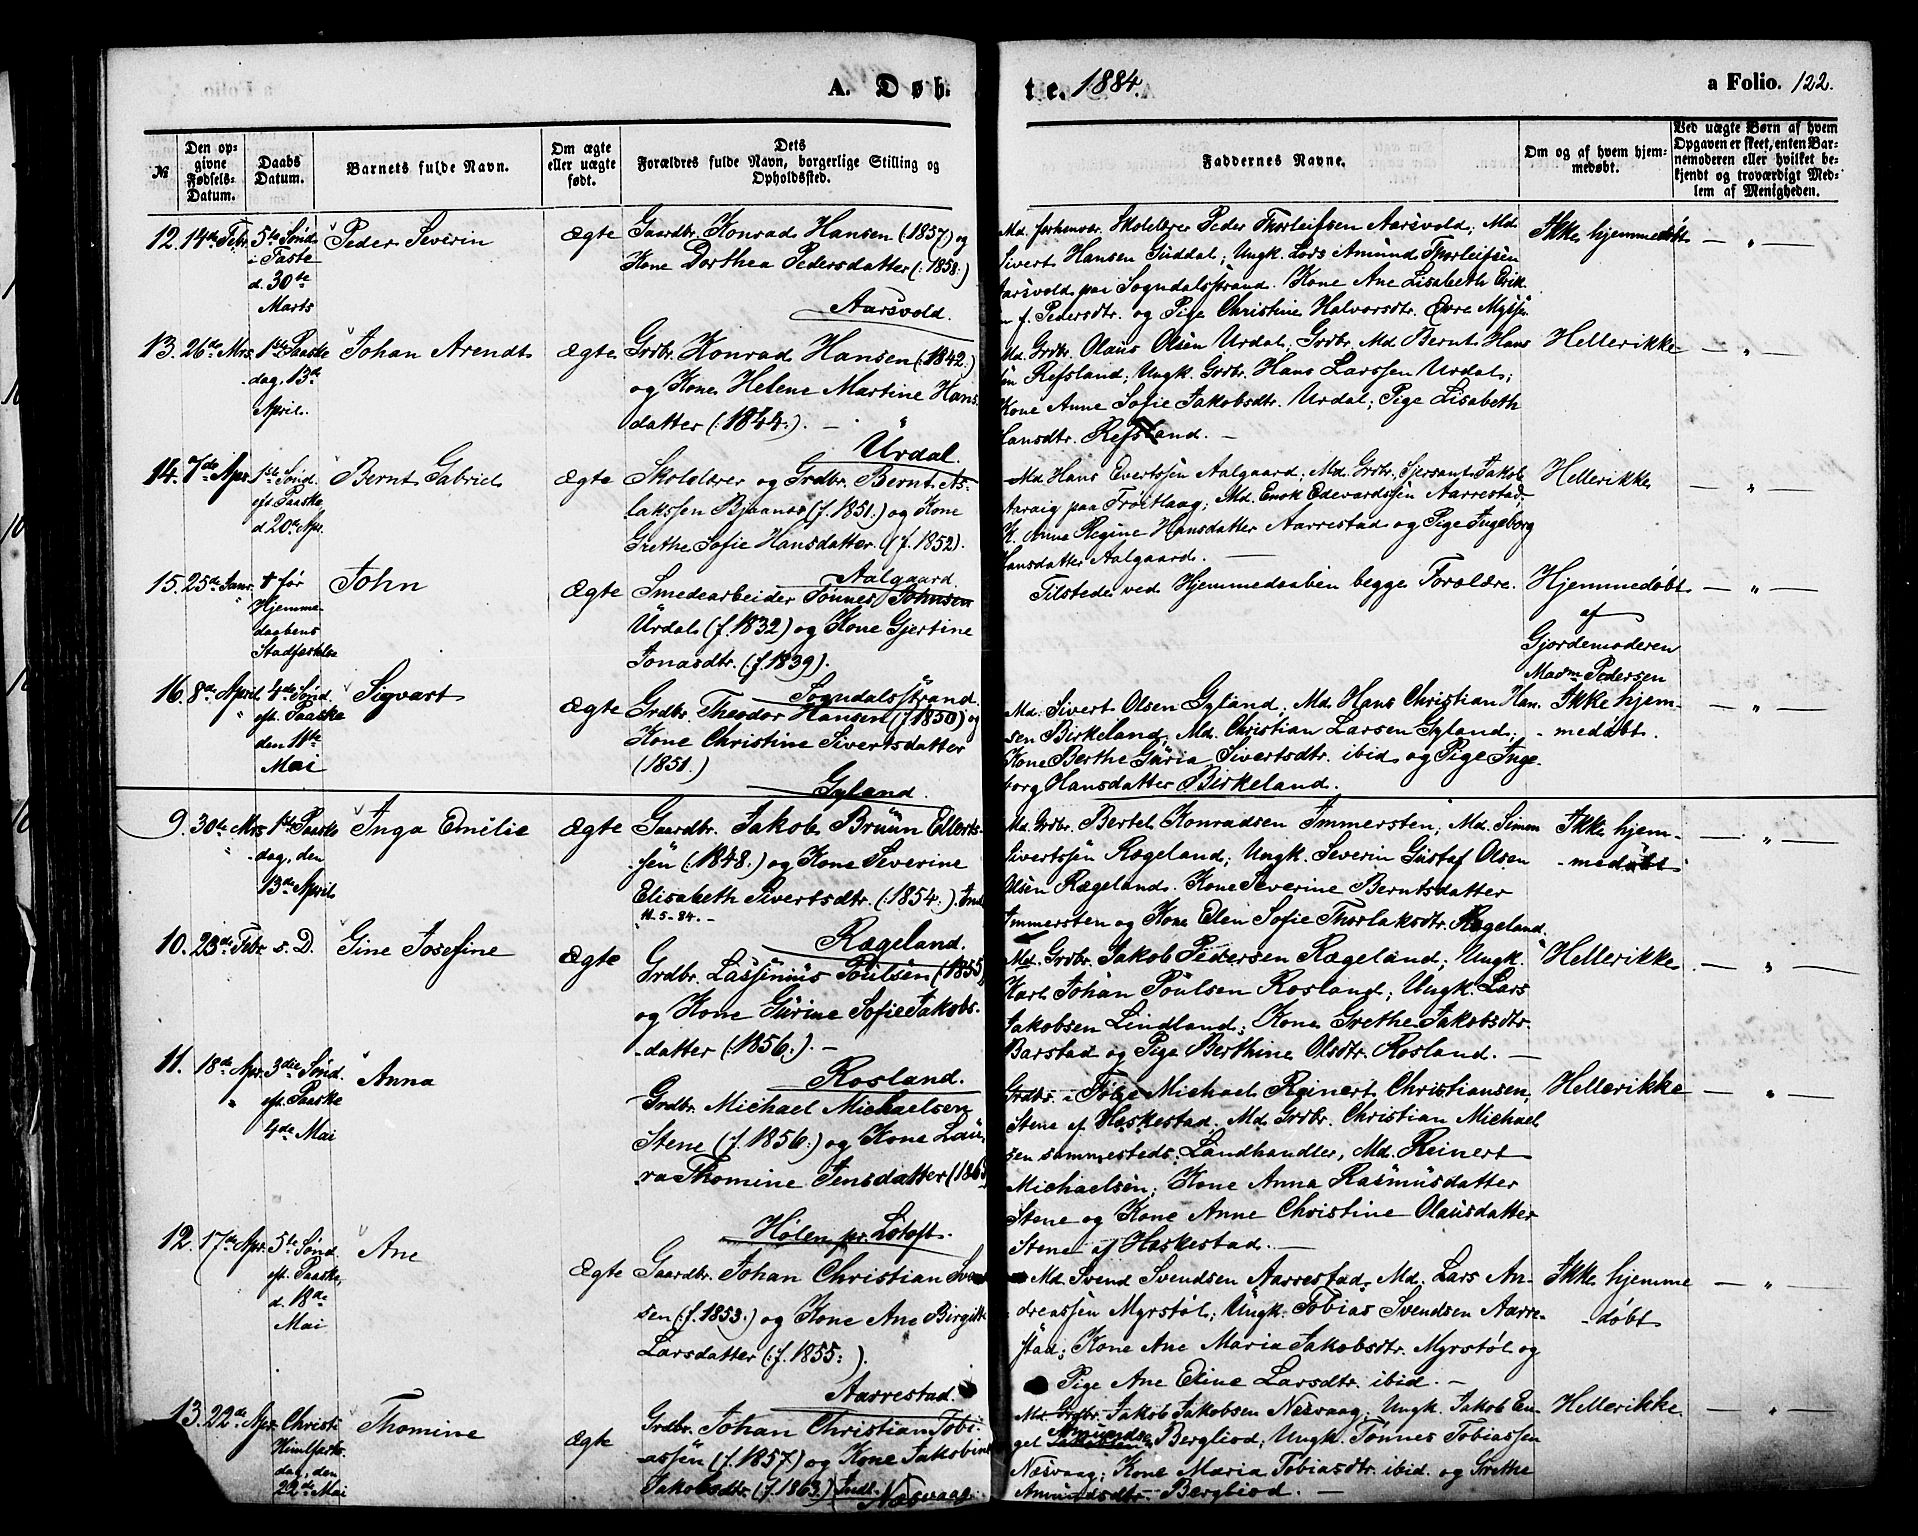 A. Døb
te. 1884.
a Folio. 122.
№
Den opgivne Fødsels-Datum.
Daabs Datum.
Barnets fulde Navn.
Om ægte eller uægte født.
Dets Forældres fulde Navn, borgerlige Stilling og Opholdssted.
Faddernes Navne.
Om og af hvem hjemmedøbt.
Ved uægte Børn af hvem Opgaven er skeet, enten Barnemoderen eller hvilket bekjendt og troværdigt Medlem af Menigheden.
12. 14de Febr. 5te Sønd. i Faste d. 30te Marts
Peder Severin
Ægte
Gaardbr. Konrad Hansen (1857) og
Kone Dorthea Pedersdatter (: 1858:)
Aarsvold.
Md. forhenvær. Skolelærer Peder Thorleifsen Aarsvold; Md.
Sivert Hansen Guddal; Ungk. Lars Amund Thorleifsen
Aarsvold paa Sogndalsstrand. Kone Ane Lisabeth Erik-
f. Pedersdtr. og Pige Christine Halvorsdtr.
Ikke hjemmedøbt
— " —
13. 26de Mrs. 1ste Paaskedag, 13de April.
Johan Arendt
Ægte
Grdbr. Konrad Hansen (1842.)
og Kone Helene Martine Hans-
datter (: 1844:). —
Urdal.
Md. Grdbr. Olaus Olsen Urdal; Grdbr. Md. Bernt Hans
sen Refsland; Ungk. Grdbr. Hans Larssen Urdal;
Kone Anne Sofie Jakobsdtr. Urdal; Pige Lisabeth
Hansdtr. Refsland. —
Hellerikke
— " —
14. 7de Apr. 1ste Sønd. eft. Paaske d. 20de Apr.
Bernt Gabriel
Ægte
Skolelærer og Grdbr. Bernt As-
lakssen Bjaanes (f. 1851.) og Kone
Grethe Sofie Hansdatter (f. 1852).
Aalgaard.
Md. Hans Evertssen Aalgaard; Md. Grdbr. Sjersant Jakob
Md. Enok Edevardssen Aarrestad,
K. Anne Regine Hansdatter Aarrestad og Pige Ingeborg
Hansdatter Aalgaard. —
Hellerikke
— " —
15. 25de Janr. † før Hjemmedaabens Stadfæstelse
John
Ægte
Smedearbeider Tønnes Johnsen
Urdal (f. 1832) og Kone Gjertine
Jonasdtr. (f. 1839).
Sogndalsstrand.
Tilstede ved Hjemmedaaben begge Forældre.
Hjemmedøbt
af
Gjordemoderen
Madm Pedersen
— " —
16. 8de April 4de Sønd. eft. Paaske den 11te Mai
Sigvart
Ægte
Grdbr. Theodor Hansen (f. 1850) og
Kone Christine Sivertsdatter
(1851.)
Gyland.
Md. Sivert Olsen Gyland; Md. Hans Christian Han-
sen Birkeland, Md. Christian Larsen Gyland;
Kone Berthe Guria Sivertsdtr. ibid og Pige Inge-
borg Hansdatter Birkeland.
Ikke hjem-
medøbt.
— " —
9. 30te Mrs. 1ste Paaskedag, den 13de April
Inga Emilie
Ægte
Gaardbr. Jakob Bruun Ellerts-
sen (: 1848.) og Kone Severine
Elisabeth Sivertsdtr. (: 1854:). Ind.
11-5-84. -
Rægeland.
Md. Grdbr. Bertel Konradsen Immersten; Md. Simon
Sivertssen Rægeland; Ungk. Severin Gustaf Olsen
Olsen Rægeland. Kone Severine Berntsdatter
Immersten og Kone Elen Sofie Thorlaksdtr. Rægeland.
Ikke hjem-
medøbt
— " —
10. 23de Febr. s. D.
Gine Josefine
Ægte
Grdbr. Lassenius Poulsen (1855)
og Kone Gurine Sofie Jakobs-
datter (: 1856:). —
Rosland.
Md. Grdbr. Jakob Pedersen Rægeland; Ungk.
Karl Johan Poulsen Rosland; Ungk. Lars
Jakobsen Lindland; Kone Grethe Jakobsdtr.
Barstad og Pige Berthine Olsdtr. Rosland. —
Hellerikke
— " —
11. 18de Apr. 3die Sønd. eft. Paaske 4de Mai
Anna
Grdbr. Michael Michaelsen
Stene (f. 1856:) og Kone Lau-
ra Thomine Jensdatter
Hølen pr. Løtoft.
Grdbs. i Følge Michael Reinert Christiansen,
Stene af Heskestad, Md. Grdbr. Christian Michael
sen sammesteds; Landhandler, Md. Reinert
Michaelsen; Kone Anna Rasmusdatter
Stene og Kone Anne Christine Olausdatter
Stene af Heskestad. —
Hellerikke
— " —
12. 17de Apr. 5te Sønd. eft. Paaske, d. 18de Mai
Ane
Ægte
Gaardbr. Johan Christian
sen (: f. 1853:) og Kone Ane Birgitte
Larsdatter (: f. 1855:).
Aarrestad.
Md. Svend Svendsen Aarrestad, Md. Lars An-
dreassen Myrstøl; Ungk. Tobias Svendsen Aarre-
stad; Kone Ane Maria Jakobsdtr. Myrstøl og
Pige Ane Eline Larsdtr. ibid. —
Ikke hjemme
døbt
— " —
13. 22de Apr. Christi Himlfartsdag, den 22de Mai
Thomine
Ægte
Grdbr. Johan Christian Tobi-
assen (f. 1857) og Kone Jakobine
Jakobsdtr. (f. 1863.) Indl. Nesvaag.
Md. Grdbr. Jakob Jakobsen Nesvaag; Ungk. Jakob En-
gel Amundsen Bergliod; Ungk. Tønnes Tobiassen
Nesvaag; Kone Maria Tobiasdtr. ibid. og Grethe
Amundsdtr. Bergliod. —
Hellerikke
— " —